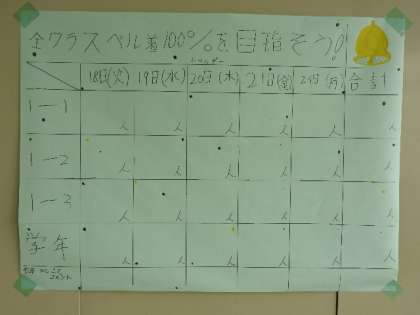 全クラスベル着100%を目指そう!
18日(火) 19日(水) 20日(木) 21日(金) 24日(月) 合計
1-1 人 人 人 人 人 人
1-2 人 人 人 人 人 人
1-3 人 人 人 人 人 人
学年 人 人 人 人 人 人